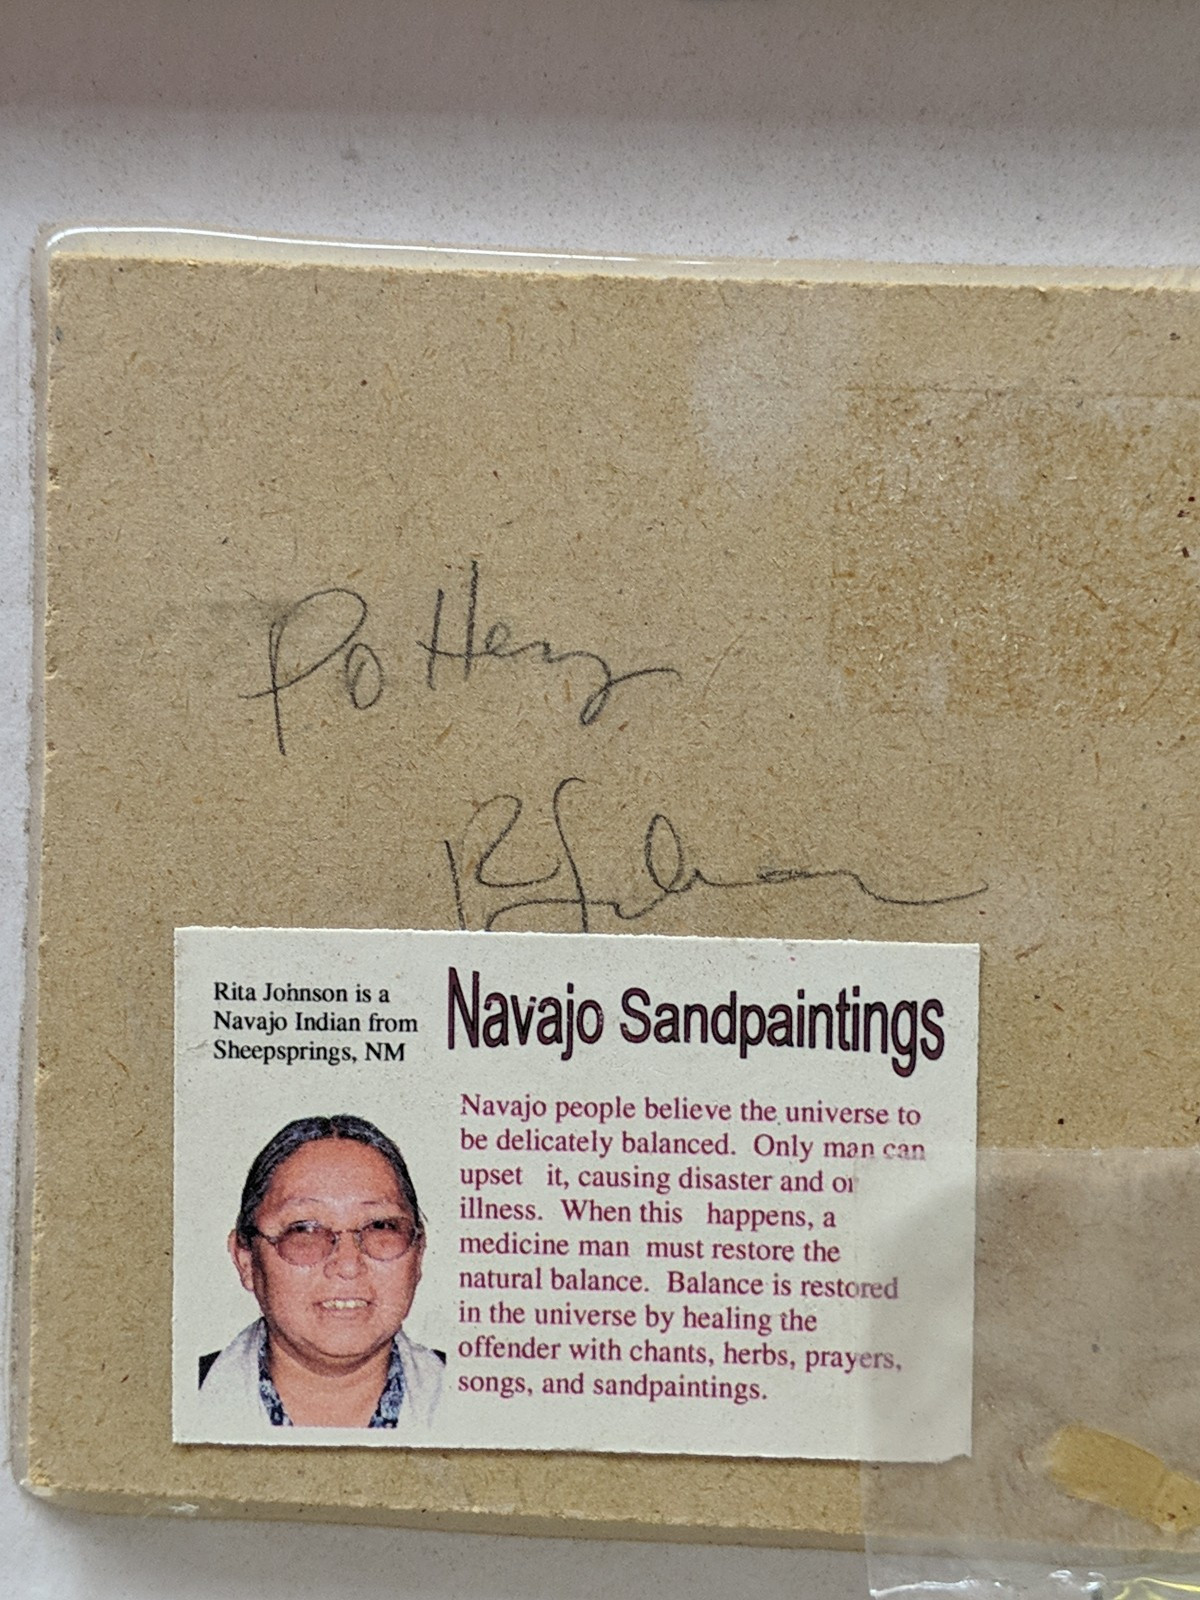 Rita Johnson is a
Navajo Indian from
Sheepsprings, NM
Navajo Sandpaintings
Navajo people believe the universe to
be delicately balanced. Only man can
upset it, causing disaster and or
illness. When this happens, a
medicine man must restore the
natural balance. Balance is restored
in the universe by healing the
offender with chants, herbs, prayers,
songs, and sandpaintings.